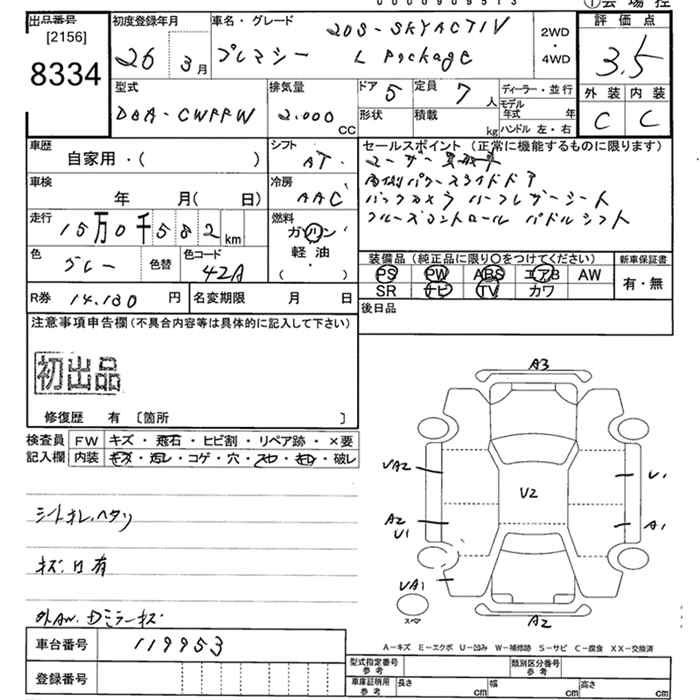 出品番号 [2156] 8334
初度登録年月 26 3月
車名・グレード プレマシー 20S-SKYACTIV L Package
2WD・4WD
評価点 3.5
外装 内装
C C
型式 DBA-CWFFW
排気量 2.000 CC
ドア 5 定員 7 人
形状 積載 kg
ディーラー・並行
モデル年式 年
ハンドル 左・右
車歴 自家用・( )
シフト AT
車検 年 月( 日)
冷房 AAC
走行 15万0千582km
燃料 ガソリン・軽油・( )
色 グレー 色替 色コード 42A
R券 14.130円 名変期限 月 日
セールスポイント (正常に機能するものに限ります)
両側パワースライドドア
バックカメラ ハーフレザーシート
クルーズコントロール パドルシフト
装備品 (純正品に限り〇をつけてください) 新車保証書
PS PW ABS エアB AW 有・無
SR ナビ TV カワ
後日品
注意事項申告欄 (不具合内容等は具体的に記入して下さい)
初出品
修復歴 有 [箇所 ]
検査員記入欄
FW キズ・飛石・ヒビ割・リペア跡・×要
内装 キズ・汚レ・コゲ・穴・スレ・モレ・破レ
シートオレ、ヘタリ
キズ、凹有
外AW、Dミラーキズ
車台番号 119953
登録番号
A3
UA2 U1
U2
A2 A1
U1
UA1
スペア
A2
A-キズ E-エクボ U-凹み W-補修跡 S-サビ C-腐食 XX-交換済
型式指定番号 参考 類別区分番号 参考
車庫証明用 参考 長さ cm 幅 cm 高さ cm